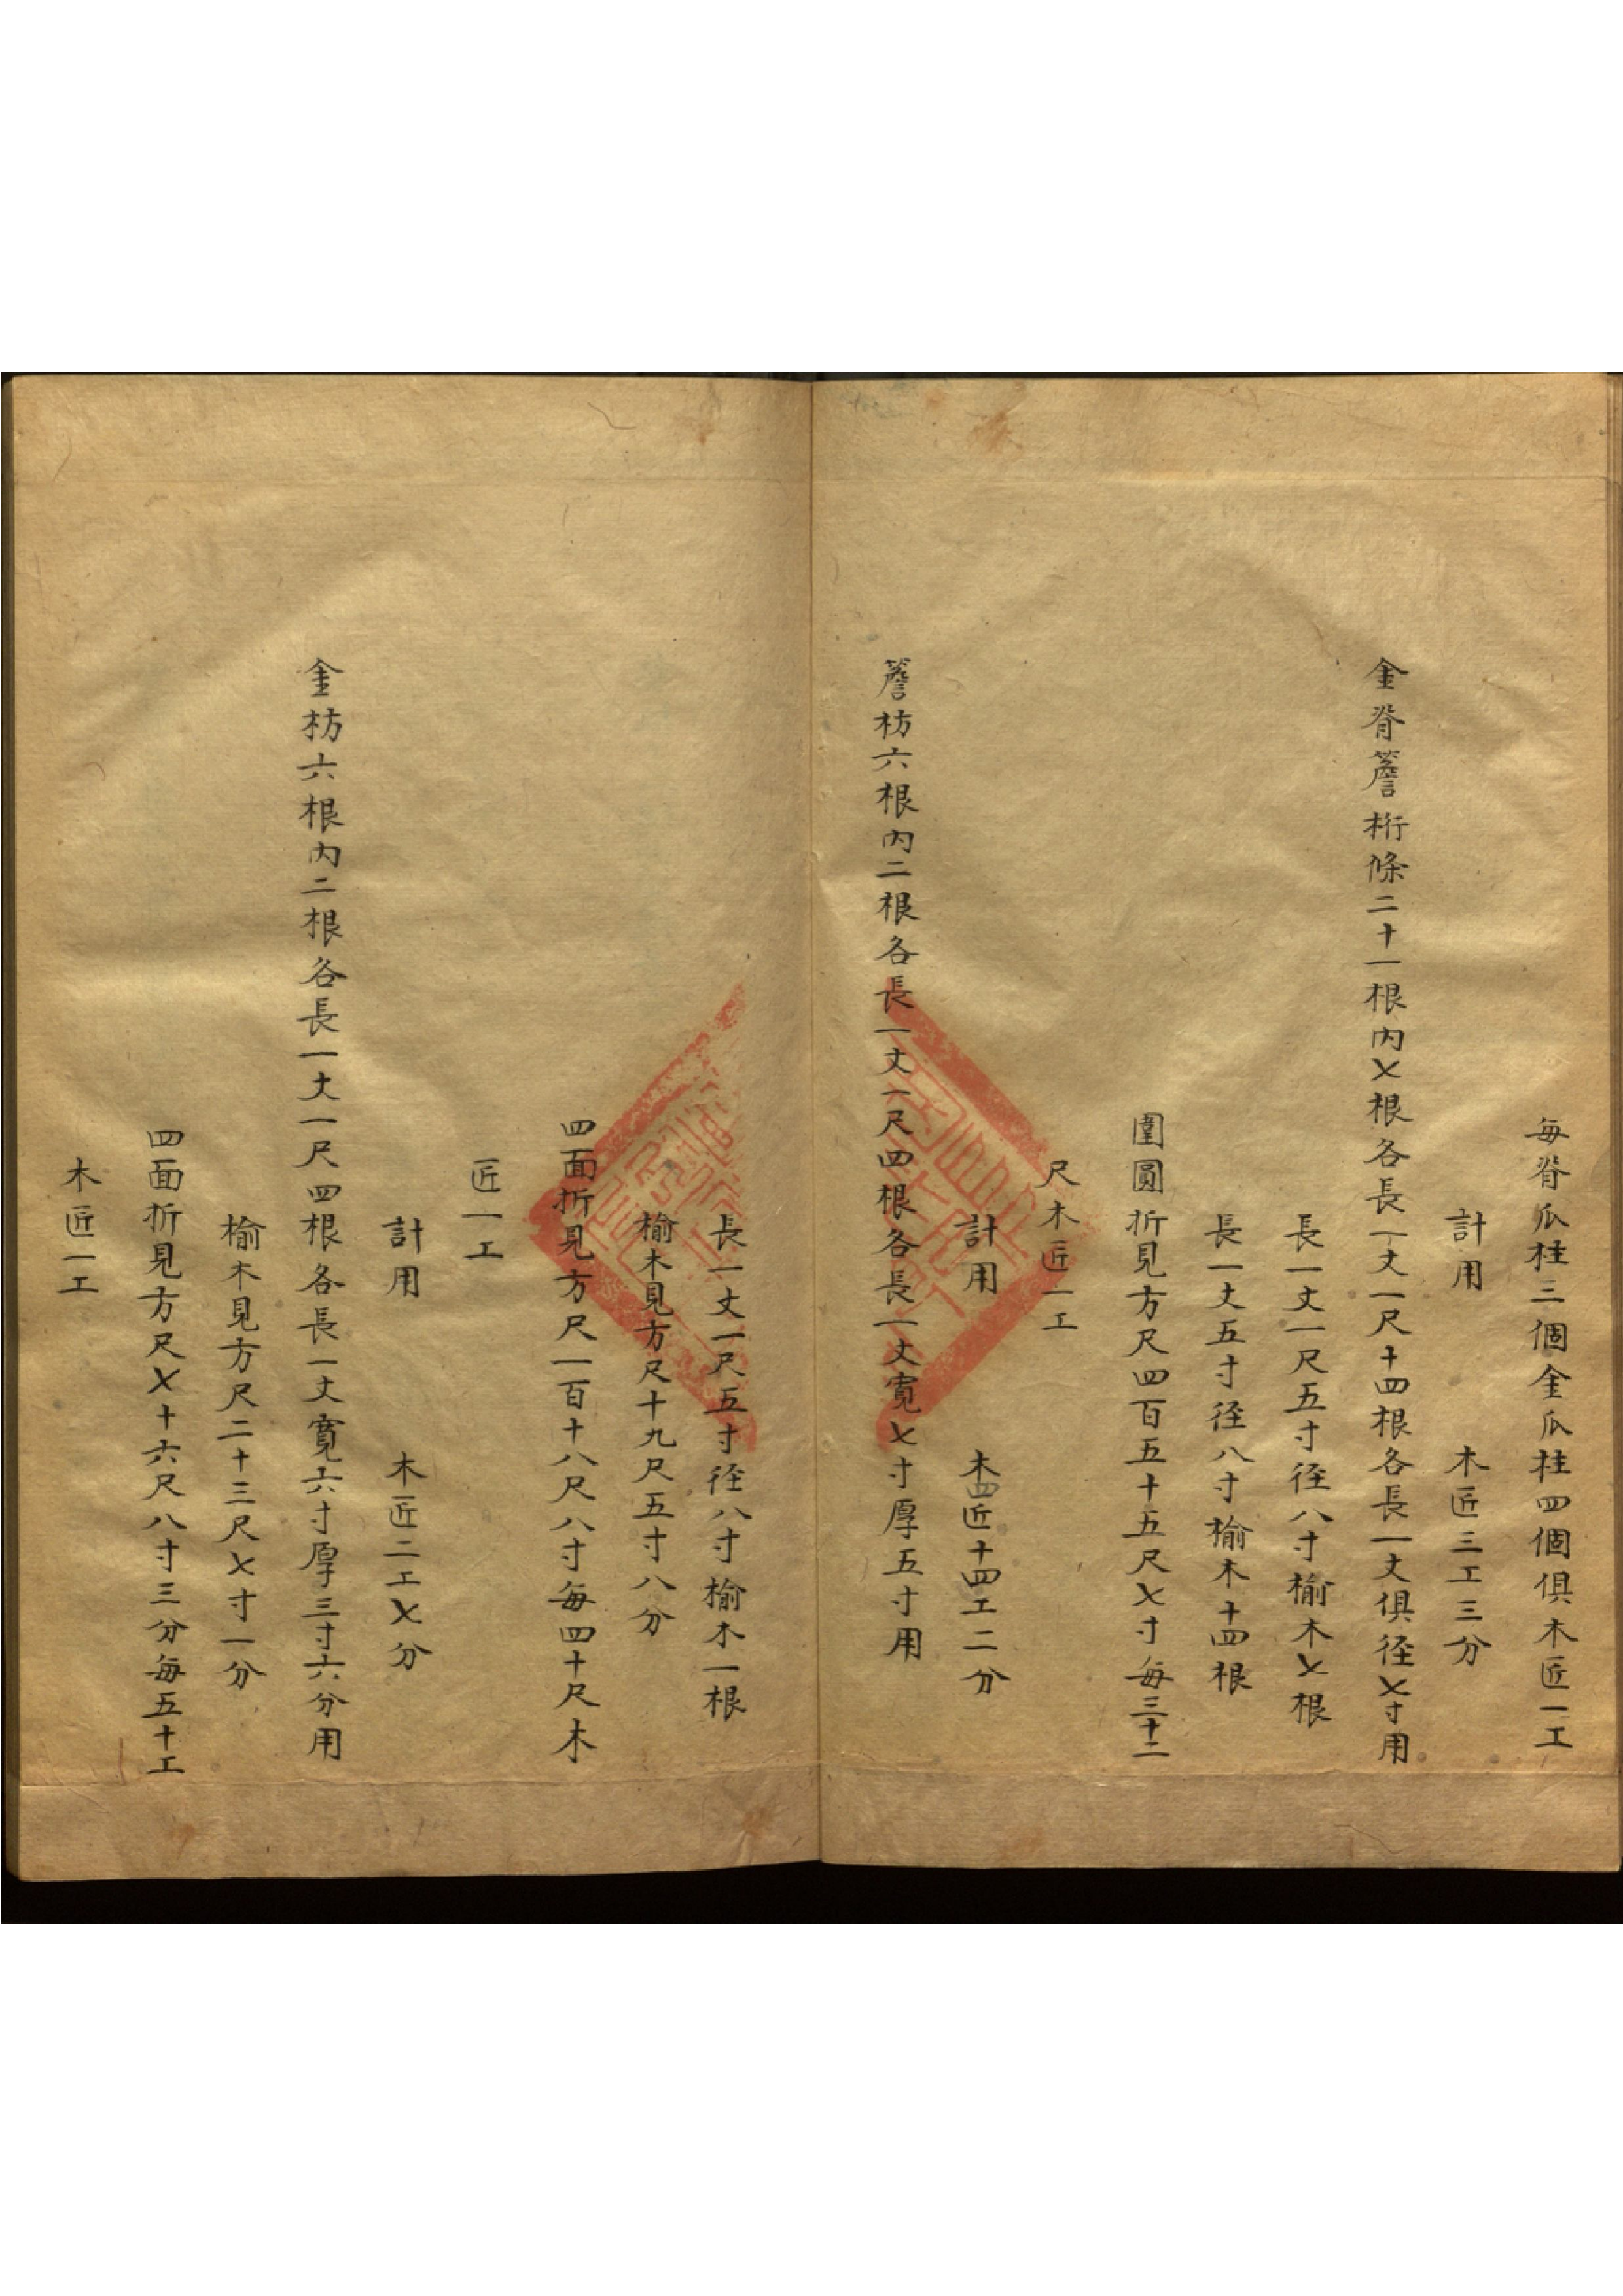 每脊瓜柱三個金瓜柱四個俱木匠一工
計用　木匠三工三分
金脊簷桁條二十一根內七根各長一丈一尺十四根各長一丈俱径七寸用
長一丈一尺五寸径八寸榆木七根
長一丈五寸径八寸榆木十四根
圍圓折見方尺四百五十五尺七寸每三十二
尺木匠一工
計用　木匠十四工二分
簷枋六根內二根各長一丈一尺四根各長一丈寬七寸厚五寸用
長一丈一尺五寸径八寸榆木一根
榆木見方尺十九尺五寸八分
四面折見方尺一百十八尺八寸每四十尺木
匠一工
計用　木匠二工七分
金枋六根內二根各長一丈一尺四根各長一丈寬六寸厚三寸六分用
榆木見方尺二十三尺七寸一分
四面折見方尺七十六尺八寸三分每五十工
木匠一工